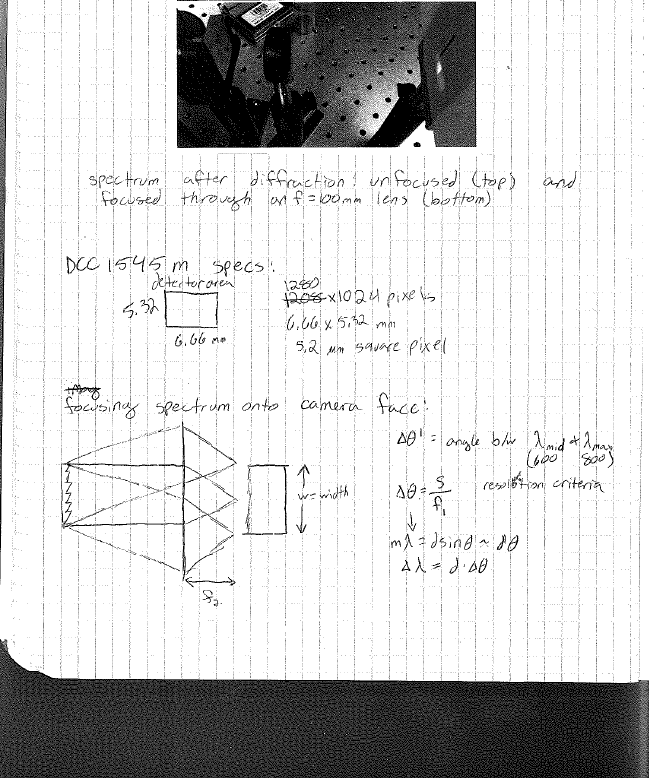 spectrum after diffraction: unfocused (top) and
focused through an f=100mm lens (bottom)
DCC1545m specs:
detector area
5.32
6.66 mm
1280
1208 x1024 pixels
6.66 x 5.32 mm
5.2 μm square pixel
focusing spectrum onto camera face:
w=width
f₂
Δθ' = angle b/w λmid & λmax
(600 800)
Δθ = S/f₁ resolution criteria
mλ = dsinθ ~ dθ
Δλ = d·Δθ